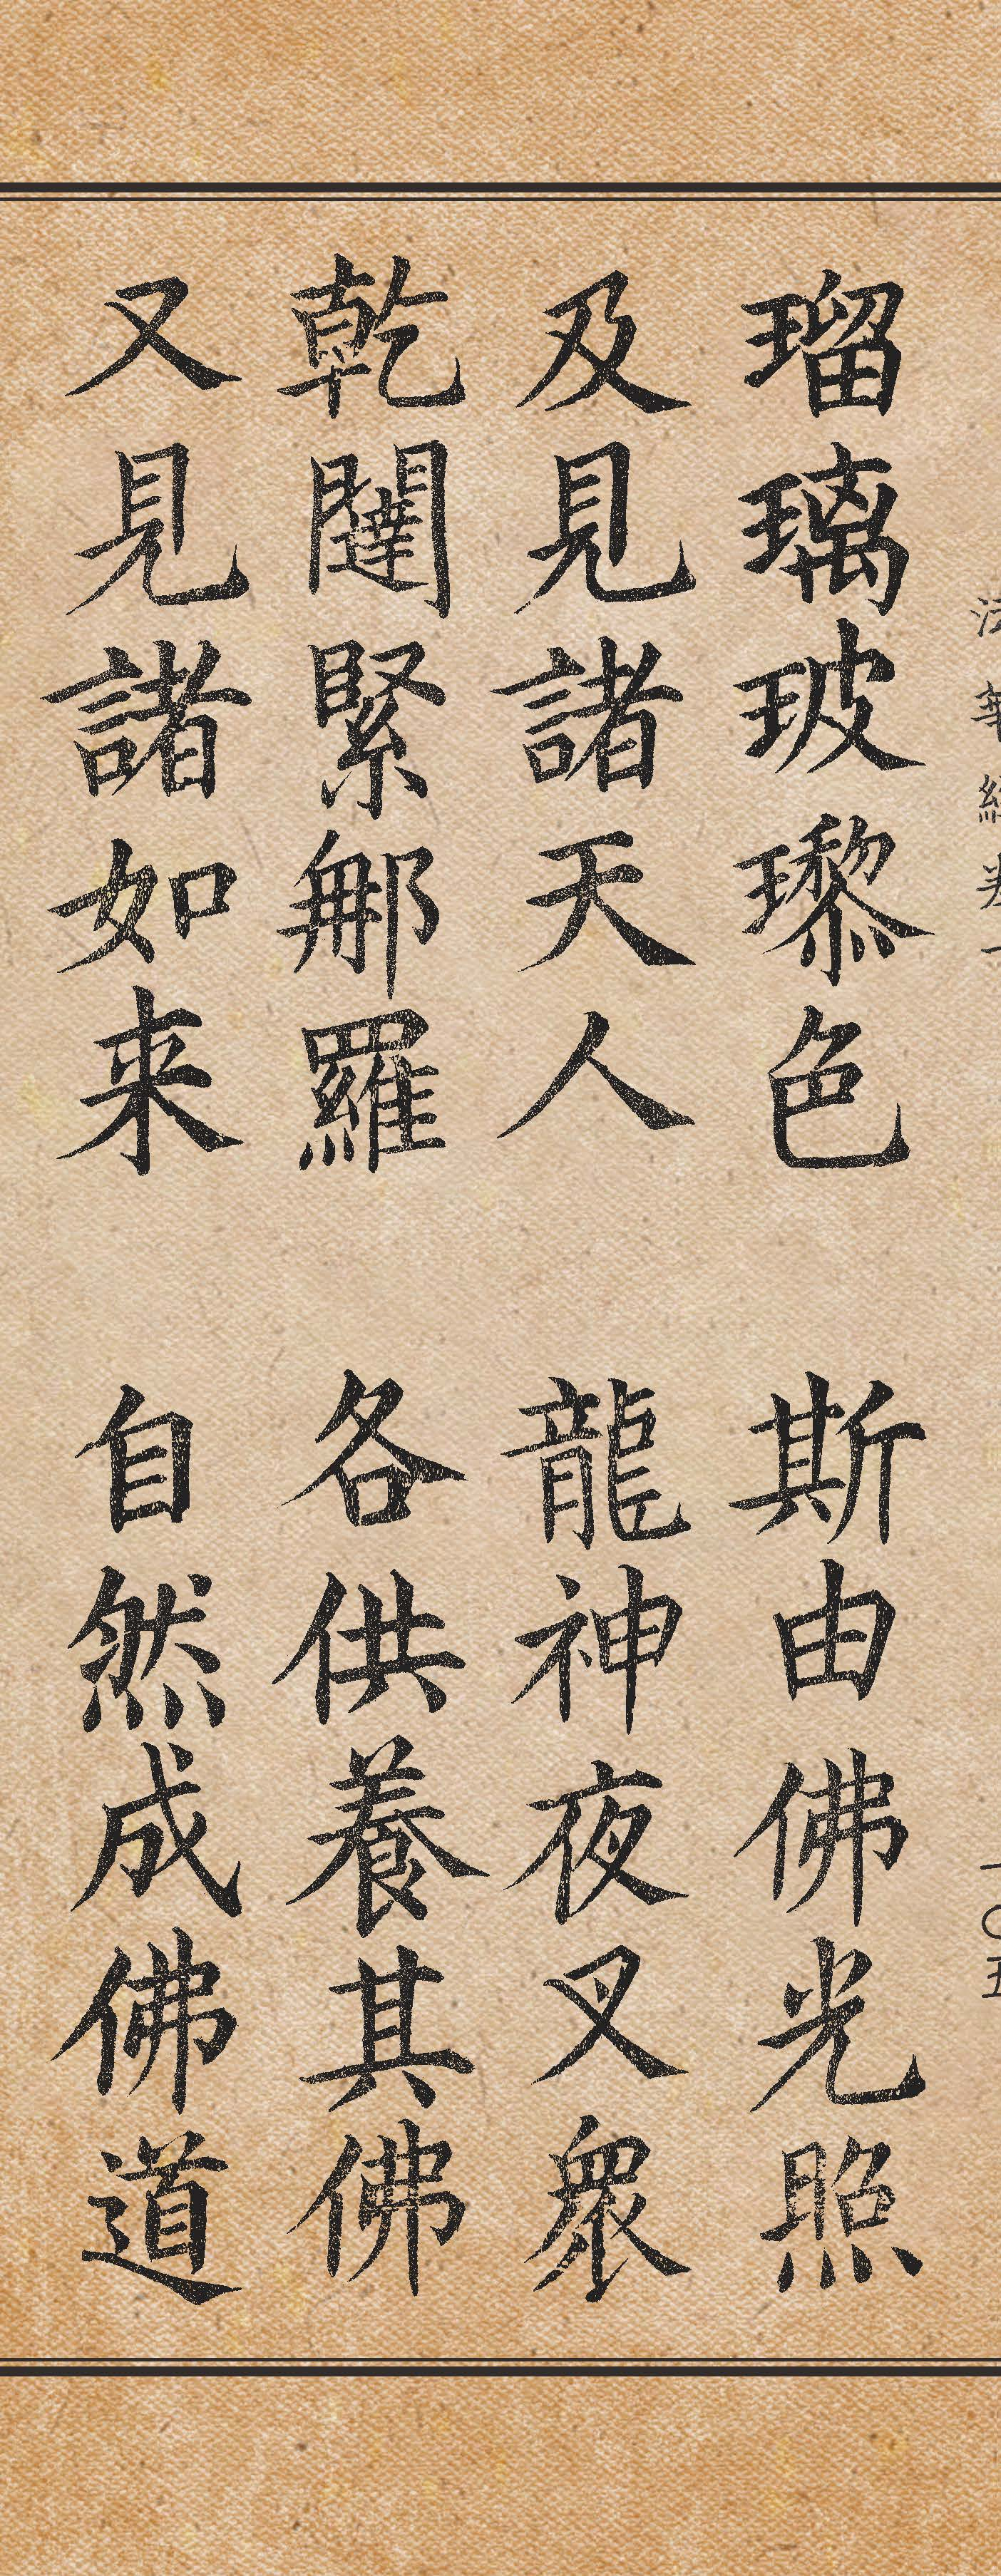 瑠璃玻瓈色　斯由佛光照
及見諸天人　龍神夜叉衆
乾闥緊那羅　各供養其佛
又見諸如来　自然成佛道